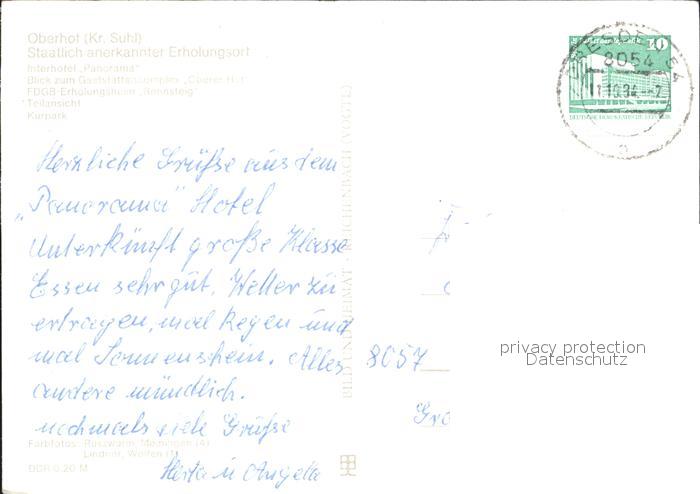 Oberhof (Kr. Suhl)
Staatlich anerkannter Erholungsort
Interhotel „Panorama"
Blick zum Gaststättenkomplex „Oberer Hof"
FDGB-Erholungsheim „Rennsteig"
Teilansicht
Kurpark
Herzliche Grüße aus dem
„Panorama" Hotel
Unterkünft große Klasse
Essen sehr gut, Wetter zu
ertragen, mal Regen und
mal Sonnenschein. Alles
andere mündlich.
nochmals viele Grüße
Herta u Angella
Farbfotos: Meiningen (4)
Lindner, Wolfen (1)
DDR 0.20 M
BILD UND HEIMAT · REICHENBACH (VOGTL)
10
DRESDEN 54
8054
DEUTSCHE DEMOKRATISCHE REPUBLIK
a
8057
privacy protection
Datenschutz